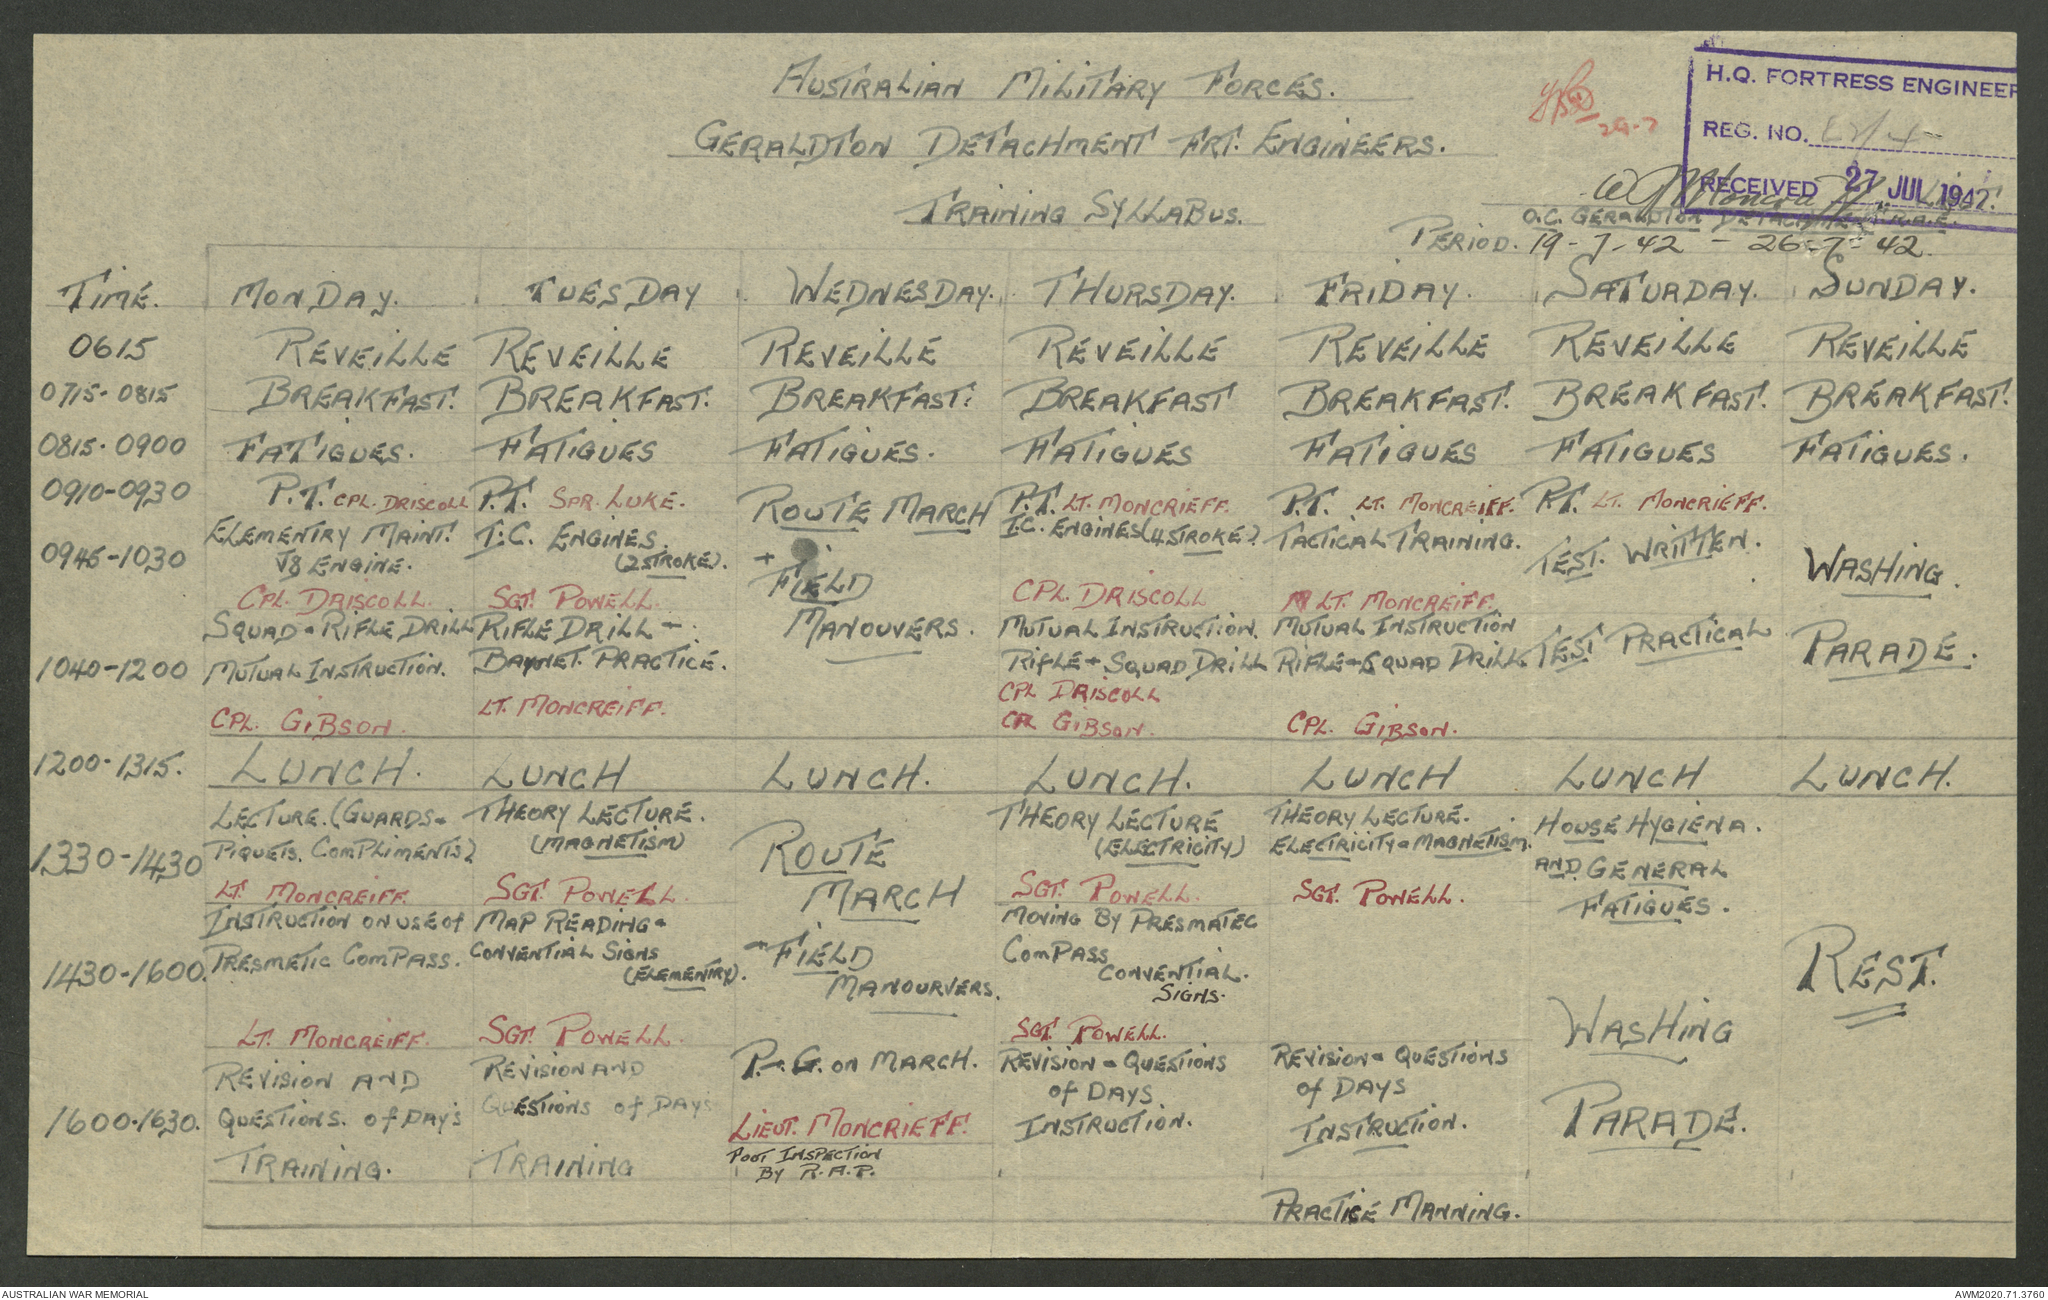 AUSTRALIAN MILITARY FORCES.
GERALDTON DETACHMENT FRT. ENGINEERS.
TRAINING SYLLABUS.
H.Q. FORTRESS ENGINEER
REG. NO.
RECEIVED 27 JUL 1942
29-7
O.C. GERALDTON DETACHMENT R.A.E.
PERIOD. 19-7-42 - 26-7-42.
TIME. MONDAY. TUESDAY WEDNESDAY. THURSDAY. FRIDAY. SATURDAY. SUNDAY.
0615 REVEILLE REVEILLE REVEILLE REVEILLE REVEILLE REVEILLE REVEILLE
0715-0815 BREAKFAST. BREAKFAST. BREAKFAST. BREAKFAST BREAKFAST. BREAKFAST. BREAKFAST.
0815-0900 FATIGUES. FATIGUES FATIGUES. FATIGUES FATIGUES FATIGUES FATIGUES.
0910-0930 P.T. CPL. DRISCOLL P.T. SPR. LUKE. ROUTE MARCH P.T. LT. MONCRIEFF. P.T. LT. MONCREIFF. P.T. LT. MONCRIEFF.
0945-1030
ELEMENTRY MAINT.
V8 ENGINE.
CPL. DRISCOLL.
I.C. ENGINES.
(2 STROKE).
SGT. POWELL.
+ FIELD
MANOUVERS.
I.C. ENGINES (4 STROKE).
CPL. DRISCOLL
TACTICAL TRAINING.
LT. MONCREIFF.
TEST. WRITTEN.
WASHING.
PARADE.
1040-1200
SQUAD + RIFLE DRILL
MUTUAL INSTRUCTION.
CPL. GIBSON.
RIFLE DRILL +
BAYNET. PRACTICE.
LT. MONCREIFF.
MUTUAL INSTRUCTION.
RIFLE + SQUAD DRILL
CPL DRISCOLL
CPL GIBSON.
MUTUAL INSTRUCTION
RIFLE + SQUAD DRILL
CPL. GIBSON.
TEST PRACTICAL
1200-1315. LUNCH. LUNCH LUNCH. LUNCH. LUNCH LUNCH LUNCH.
1330-1430
LECTURE. (GUARDS +
PIQUETS. COMPLIMENTS)
LT. MONCREIFF.
THEORY LECTURE.
(MAGNETISM)
SGT. POWELL.
ROUTE
MARCH
+ FIELD
MANOURVERS.
THEORY LECTURE
(ELECTRICITY)
SGT. POWELL.
THEORY LECTURE.
ELECTRICITY + MAGNETISM.
SGT. POWELL.
HOUSE HYGIENA.
AND GENERAL
FATIGUES.
REST.
1430-1600.
INSTRUCTION ON USE OF
PRESMETIC COMPASS.
LT. MONCREIFF.
MAP READING +
CONVENTIAL SIGNS
(ELEMENTRY).
SGT. POWELL.
MOVING BY PRESMATEC
COMPASS
CONVENTIAL.
SIGNS.
SGT. POWELL.
WASHING
PARADE.
1600-1630.
REVISION AND
QUESTIONS. OF DAY'S
TRAINING.
REVISION AND
QUESTIONS OF DAYS
TRAINING
P.+G. ON MARCH.
LIEUT. MONCRIEFF.
FOOT INSPECTION
BY R.A.P.
REVISION + QUESTIONS
OF DAYS
INSTRUCTION.
REVISION + QUESTIONS
OF DAYS
INSTRUCTION.
PRACTICE MANNING.
AUSTRALIAN WAR MEMORIAL
AWM2020.71.3760